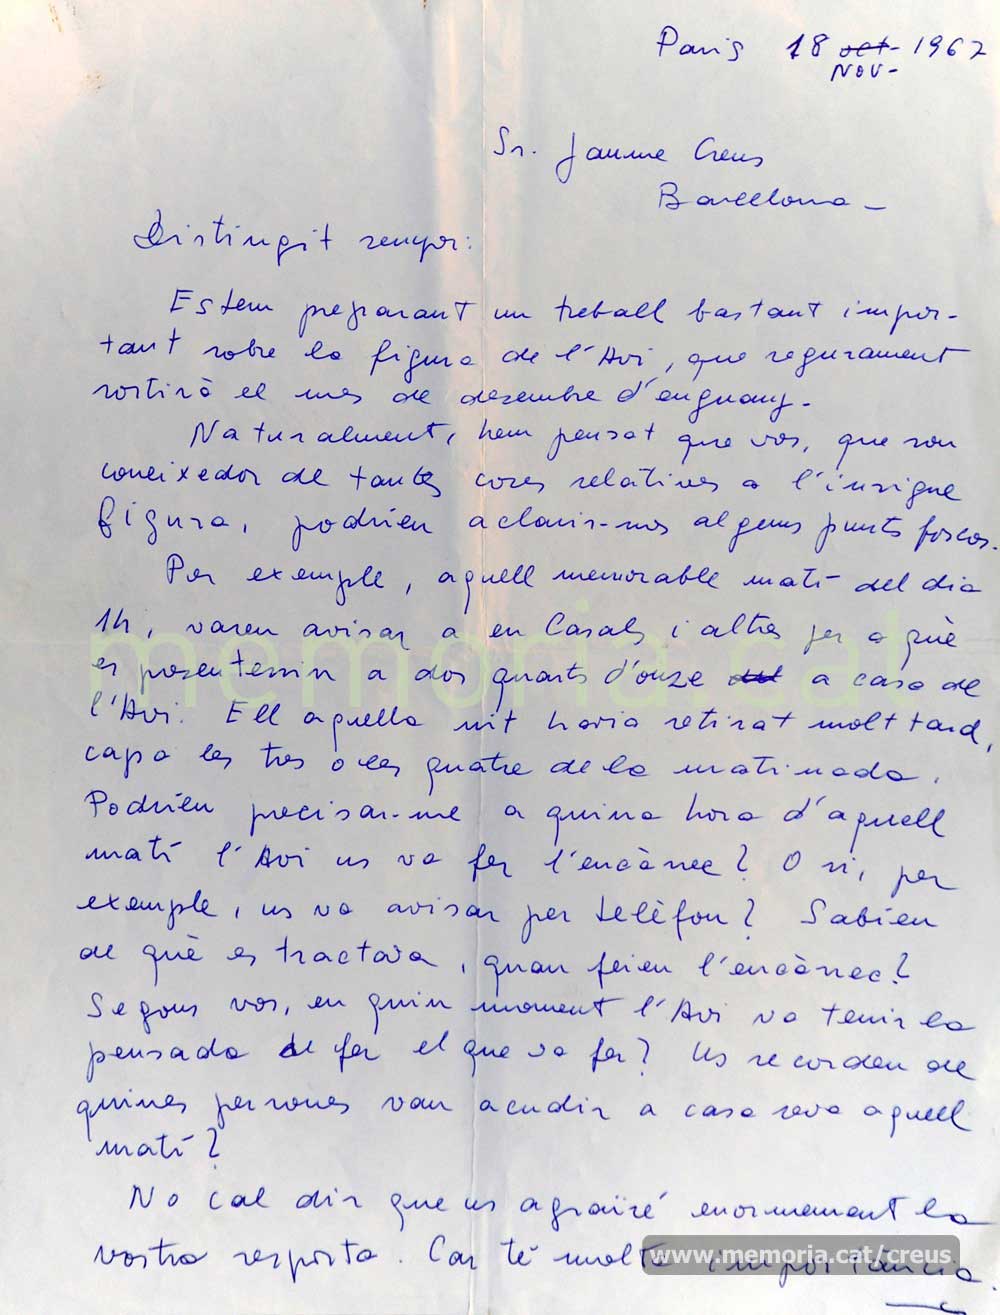 Paris 18 oct- 1967
NOV-
Sr. Jaume Creus
Barcelona -
Distingit senyor:
Estem preparant un treball bastant impor-
tant sobre la figura de l'Avi, que segurament
sortirà el mes de desembre d'enguany.
Naturalment, hem pensat que vos, que sou
coneixedor de tantes coses relatives a l'insigne
figura, podrieu aclarir-nos alguns punts foscos.
Per exemple, aquell memorable matí del dia
14, varen avisar a en Casals i altres per a què
es presentessin a dos quarts d'onze a casa de
l'Avi. Ell aquella nit havia retirat molt tard,
capa les tres o les quatre de la matinada.
Podrieu precisar-me a quina hora d'aquell
matí l'Avi us va fer l'encàrrec? O si, per
exemple, us va avisar per telèfon? Sabieu
de què es tractava, quan feieu l'encàrrec?
Segons vos, en quin moment l'Avi va tenir la
pensada de fer el que va fer? Us recordeu de
quines persones van acudir a casa seva aquell
matí?
No cal dir que us agrairé enormement la
vostra resposta. Car té molta importància.
memoria.cat
www.memoria.cat/creus